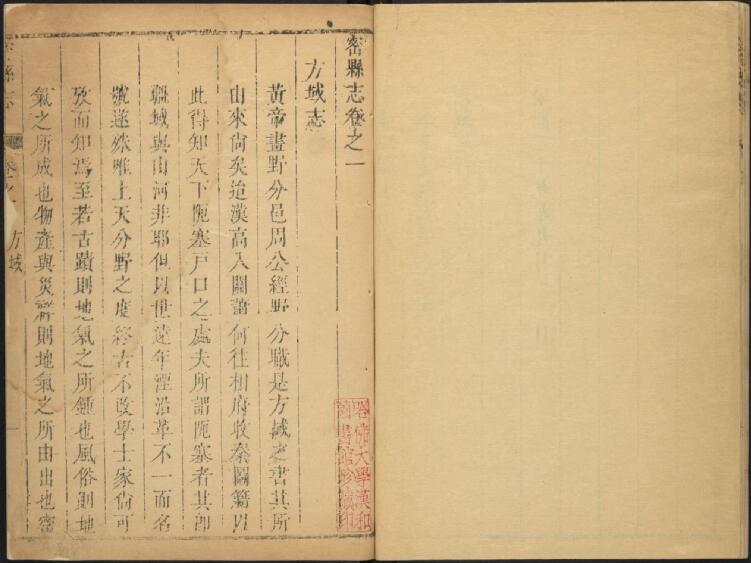 密縣志卷之一
方域志
黃帝畫野分邑周公經野分職是方域之書其所
由來尙矣迨漢高入關蕭何往相府收秦圖籍以
此得知天下阨塞戶口之處夫所謂阨塞者其卽
疆域與山河非耶但以世遠年湮沿革不一而名
號遂殊唯上天分野之度終古不改學士家尙可
攷而知焉至若古蹟則地氣之所鍾也風俗則地
氣之所成也物產與災祥則地氣之所由出也密
密縣志
卷之一
方域
一
哈佛大學漢和
圖書館珍藏印